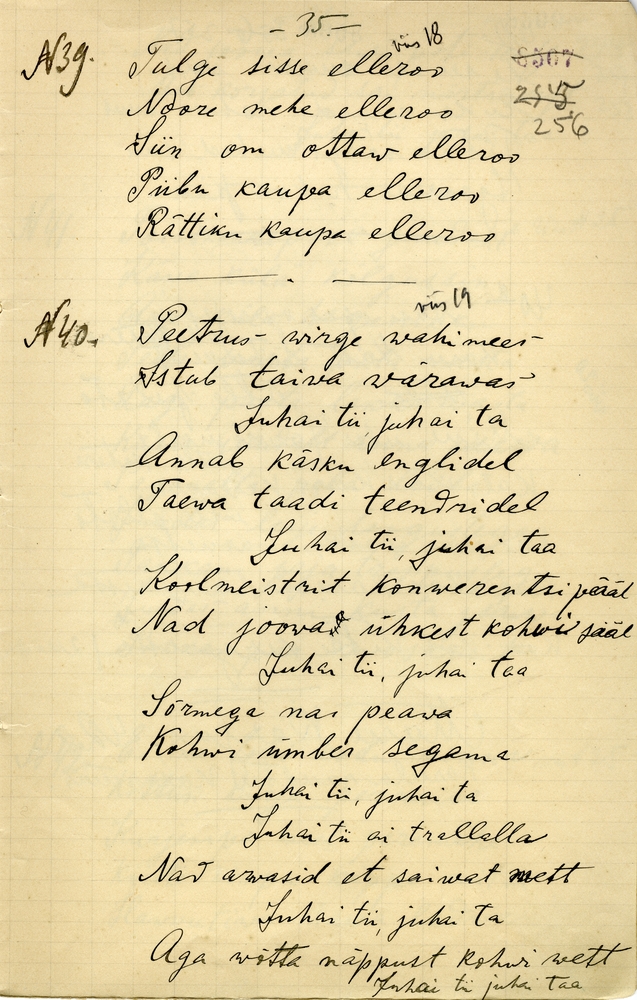 - 35. -
viis 18
N39. Tulge sisse elleroo
Noore mehe elleroo
Siin om ottaw elleroo
Piibu kaupa elleroo
Rättiku kaupa elleroo
8567
255
256
viis 19
N40. Peetrus wirge wahimees
Istub taiwa wärawas
Juhai tii, juhai ta
Annab käsku englidel
Taewa taadi teendridel
Juhai tii, juhai taa
Koolmeistrit konwerentsi pääl
Nad joowad ühkest kohwi sääl
Juhai tii, juhai taa
Sõrmega nas peawa
Kohwi ümber segama
Juhai tii, juhai ta
Juhai tii ai trallalla
Nad arwasid et saiwat mett
Juhai tii, juhai ta
Aga wõtta näppust kohwi wett
Juhai tii juhai taa